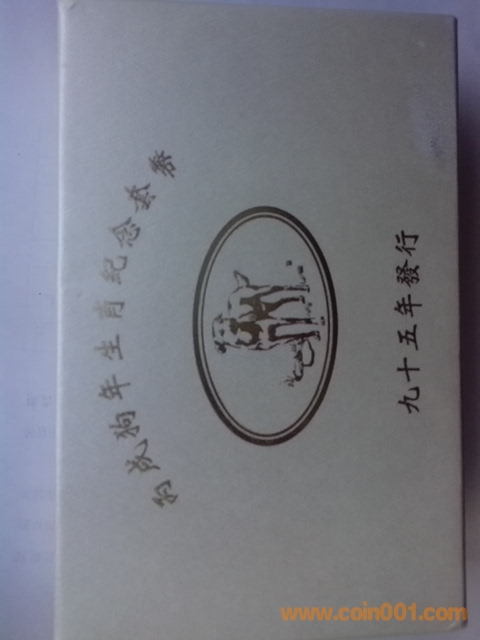 戌狗年生肖紀念套
九十五年發行
www.coin001.com